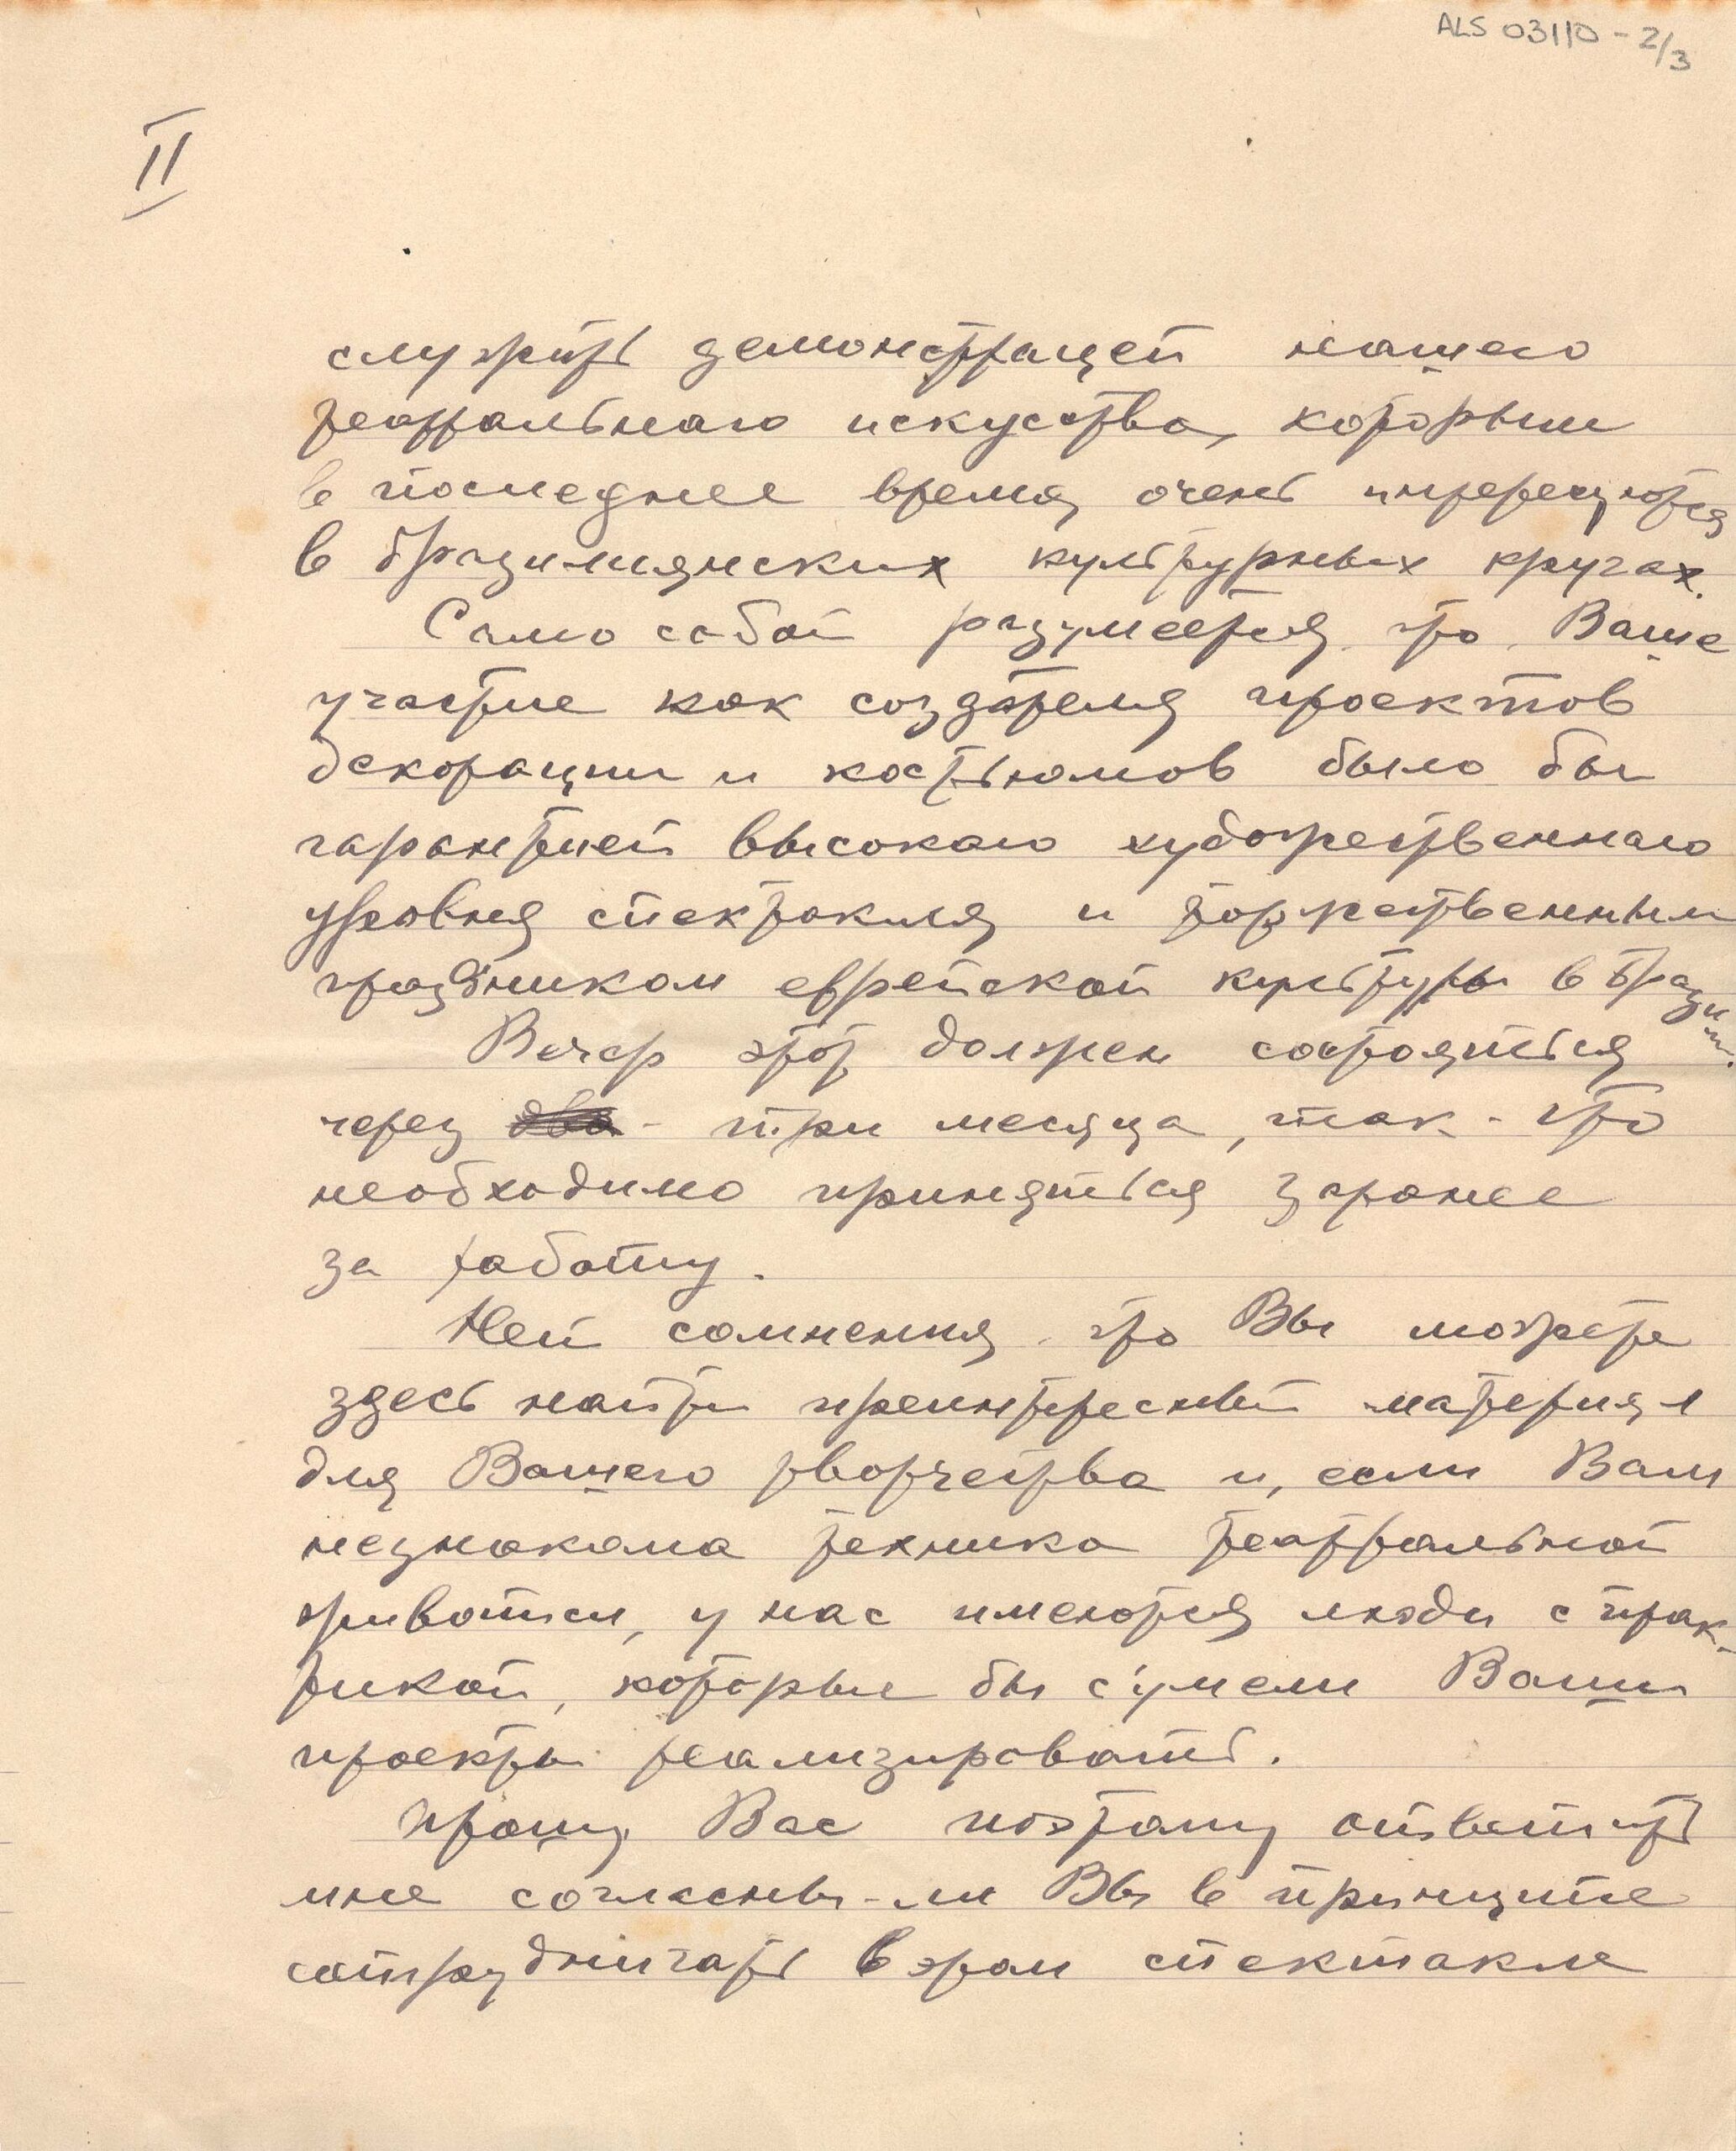 ALS 03110 - 2/3
II
служить демонстрацей нашего
театральнаго искуства, которым
в последнее время очень интересуются
в бразилиянских культурных кругах.
Само собой разумеется что Ваше
участие как создателя проектов
декорации и костьюмов было бы
гарантией высокаго художественнаго
уровня спектакля и торжественным
праздником еврейской культуры в Бразилии.
Вечер этот должен состояться
через два - три месяца, так-что
необходимо приняться заранее
за работу.
Нет сомнения что Вы можете
здесь найти преинтересный материял
для Вашего творчества и, если Вам
незнакома техника театральной
живописи, у нас имеются люди с прак-
тикой, которые бы с'умели Ваши
проекты реализировать.
Прошу Вас поэтому ответить
мне согласны-ли Вы в принципе
сотрудничать в этом спектакле